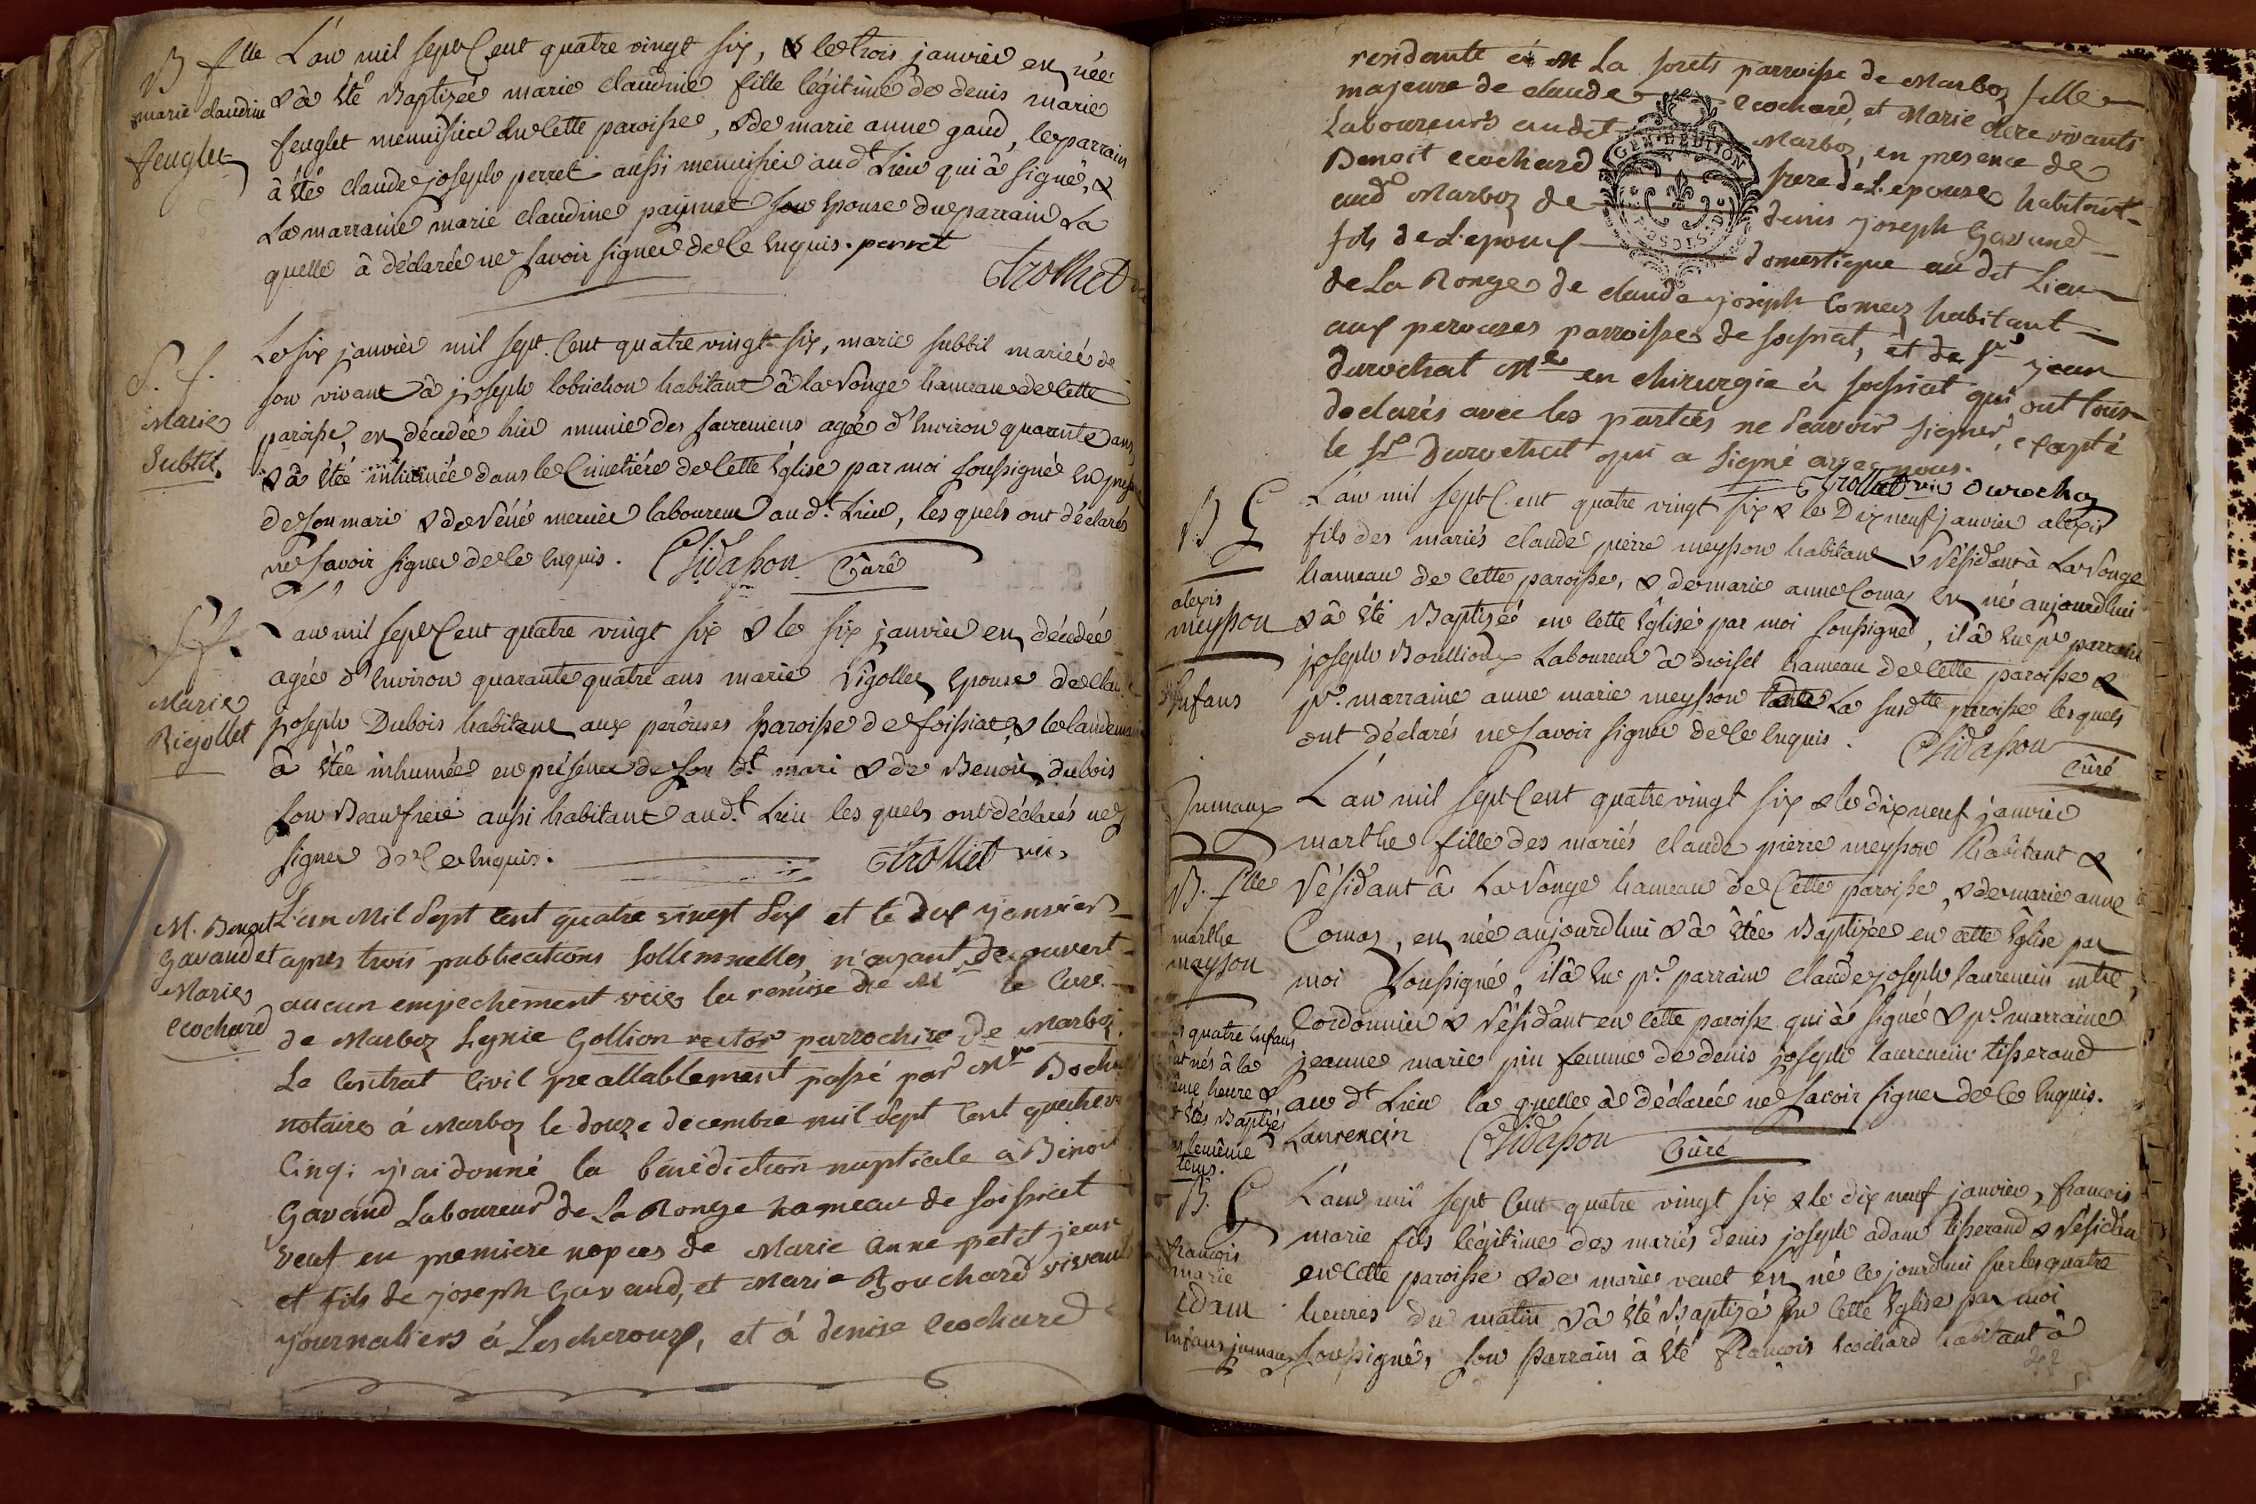 B fille
marie claudine
feuglet
L'an mil sept Cent quatre vingt six, & le trois janvier est née
& â été Baptizée marie claudine fille légitime de denis marie
feuglet menuisier en cette paroisse, & de marie anne gaud, le parrain
â été claude joseph perret aussi menuisier aud.t Lieu qui â signé, &
La marraine marie claudine son Epouse du parrain La
quelle â déclarée ne savoir signer de ce Enquis. perret
Trolliet
S. f.
Marie
Subtil.
Le six janvier mil sept Cent quatre vingt six, marie subtil mariée de
son vivant â joseph lobrichon habitant â la Vonge hameau de cette
paroisse, est décédée hier munie des sacremens agée d'Environ quarante ans
& â étée inhumée dans le Cimetière de cette Eglise par moi soussigné en
de son mari & de Réné mercier laboureur aud.t Lieu, les quels ont déclarés
ne savoir signer de ce Enquis. Chidasson Curé
S. f.
Marie
Rigollet
L'an mil sept Cent quatre vingt six & le six janvier est décédée
agée d'Environ quarante quatre ans marie Rigollet Epouse de
joseph Dubois habitant aux perouses paroisse de foissiat, & le landemain
â étée inhumée en présence de son d.t mari & de Benoit dubois
son Beaufrere aussi habitant aud.t Lieu les quels ont déclarés ne
signer de ce Enquis. Trolliet vic.
M. Benoit
Gavand et
Marie
ecochard
L'an Mil Sept Cent quatre vingt Six et le dix janvier
apres trois publications sollemnelles n'ayant decouvert
aucun empechement vüe la remise de Mr le Curé
de Marboz Signé Gollion rector parrochiæ de Marboz.
Le Contrat Civil preallablement passé par Mre
notaire á Marboz le douze decembre mil Sept Cent
Cinq; j'ai donné la bénédiction nuptiale à Benoit
Gavand Laboureur de La Ronge hameau de foissiat
veuf en premiere nopces de Marie Anne petit jean
et fils de joseph Gavand, et Marie Bouchard vivants
journaliers á Lescheroux, et á denise ecochard
residante á La forets parroisse de Marboz fille
majeure de claude ecochard, et Marie clere vivants
Laboureurs audit Marboz, en presence de
Benoit ecochard frere de L'epouse habitant
aud.t Marboz de denis joseph Gavand
fils de L'epoux domestique au dit Lieu
de La Ronge de claude joseph Comaz habitant
aux perouses parroisse de foissiat, et de Sr jean
Durochat Me en chirurgie á foissiat qui ont tous
declarés avec les parties ne sçavoir signer, excepté
le Sr Durochat qui a signé avec nous.
GEN. DE DIJON
Trolliet vic Durochaz
B G
alexis
meysson
Enfans
L'an mil sept Cent quatre vingt six & le Dix neuf janvier alexis
fils des mariés claude pierre meysson habitant & Résidant â La Vonge
hameau de cette paroisse, & de marie anne Comaz est né aujourdhui
& â été Baptizé en cette Eglise par moi soussigné, il â Eu pr parrain
joseph Boullioux Laboureur â hameau de cette paroisse &
pr. marraine anne marie meysson La susdtte paroisse les quels
ont déclarés ne savoir signer de ce Enquis. Chidasson
Curé
Jumaux
B. fille
marthe
mayson
quatre Enfans
nés â la
heure &
Baptizés
lemême
tems.
L'an mil sept Cent quatre vingt six & le dix neuf janvier
marthe fille des mariés claude pierre meysson habitant &
Résidant â La Vonge hameau de Cette paroisse, & de marie anne
Comaz, est née aujourdhui & â étée Baptizée en cette Eglise par
moi soussigné, il â Eu pr. parrain claude joseph laurencin mtre
Cordonnier & Résidant en cette paroisse qui â signé & pr. marraine
jeanne marie pin femme de denis joseph laurencin tisserand
au d.t Lieu la quelle â déclarée ne savoir signer de ce Enquis.
Laurencin Chidasson Curé
B. G
françois
marie
Adam
Enfans jumaux
L'an mil sept Cent quatre vingt six & le dix neuf janvier, françois
marie fils légitime des mariés denis joseph adam tisserand & Résidant
en Cette paroisse & de marie venet est né ce jourdhui sur les quatre
heures du matin & â été Baptizé en Cette Eglise par moi
soussigné, son parrain â été françois Ecochard habitant â